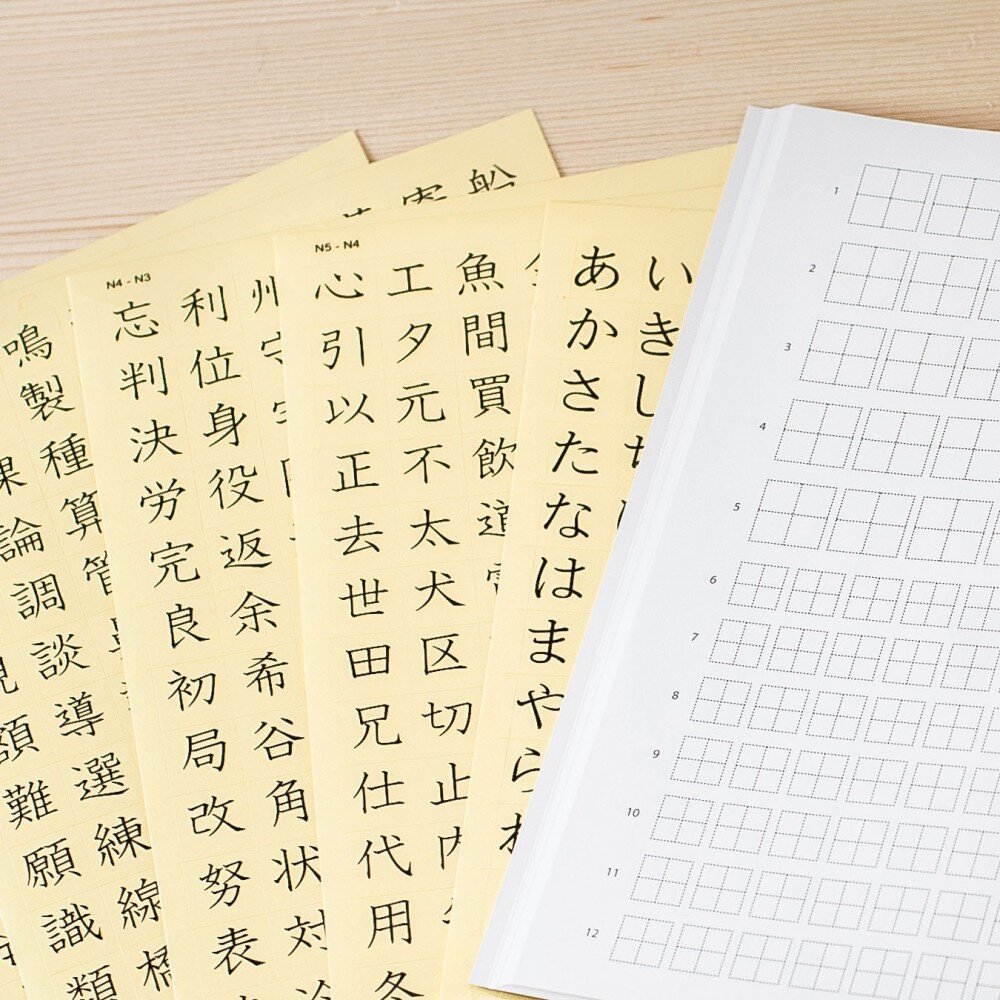 船
鳴
製
種
論 算
調 管
談
額 導
難 選
願 練
識 線
類 橋
N4 - N3
忘 利 州
判 位 守
決 身
労 役
完 返
良 余
初 希
局 谷
改 角
努 状
表 対
N5 - N4
心 工 魚
引 夕 間
以 元 買
正 不 飲
去 太 道
世 犬
田 区
兄 切
仕 止
代 内
用
冬
あ い
か き
さ し
た ち
な
は
ま
や
ら
1
2
3
4
5
6
7
8
9
10
11
12